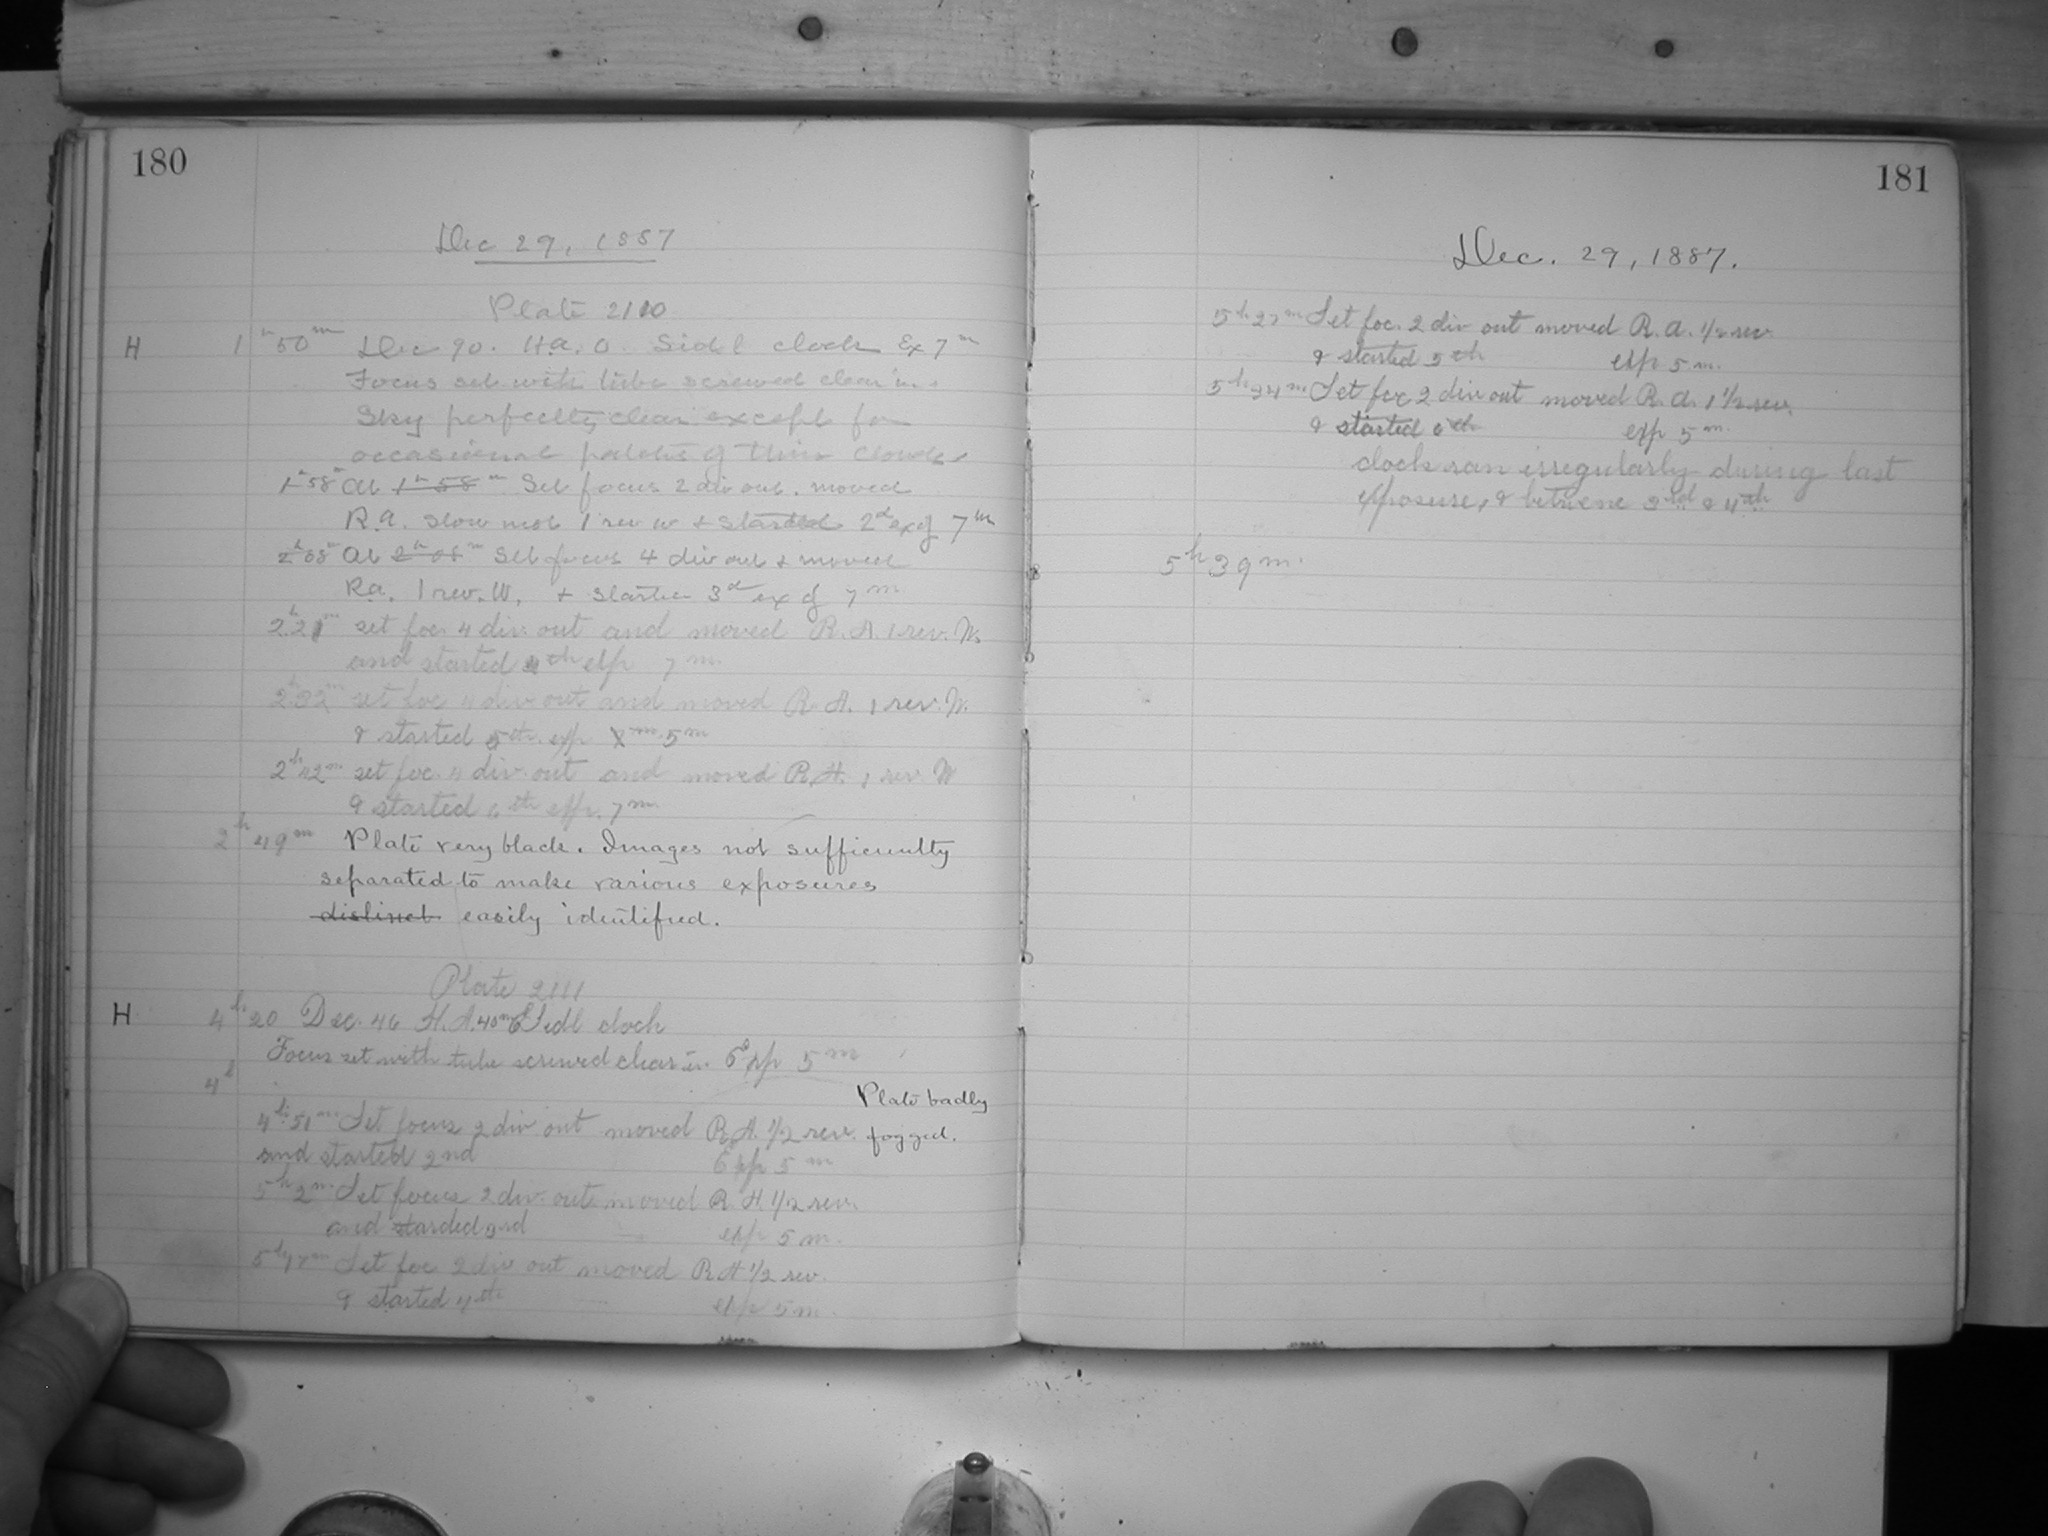 180
Dec 29, 1887
Plate 2110
H 1h 50m Dec 90. H.a. 0. Sidl clock Ex 7m
Focus set with tube screwed clear in.
Sky perfectly clear except for
occasional patches of thin clouds
1h 58m At 1h 58m Set focus 2 div out. moved
R.a. slow mot 1 rev w + started 2d ex of 7m
2h 08m At 2h 08m Set focus 4 div out & moved
R.a. 1 rev. W. + started 3d ex of 7m
2h 21m set foc. 4 div. out and moved R. A. 1 rev. W.
and started 4th exp 7m.
2h 32m set foc 4 div out and moved R. A. 1 rev. W.
& started 5th exp 5m
2h 42m set foc. 4 div. out and moved R. A. 1 rev W
& started 6th exp. 7m.
2h 49m Plate very black. Images not sufficiently
separated to make various exposures
distinct easily identified.
Plate 2111
H 4h 20 Dec. 46 H. A. 40m Sidl clock
Focus set with tube screwed clear in. Exp 5m
4h
Plate badly
fogged.
4h 51m Set focus 2 div out moved R. A. 1/2 rev.
and started 2nd Exp 5m
5h 2m Set focus 2 div. out moved R. A. 1/2 rev.
and starded 3rd exp 5m.
5h 17m Set foc 2 div out moved R A 1/2 rev.
& started 4th exp 5m.
181
Dec. 29, 1887.
5h 27m Set foc. 2 div out moved R. a. 1/2 rev.
& started 5th exp 5m.
5h 34m Set foc 2 div out moved R. a. 1 1/2 rev.
& started 6th exp 5m.
clock ran irregularly during last
exposure, & betwene 3rd & 4th
5h 39m.